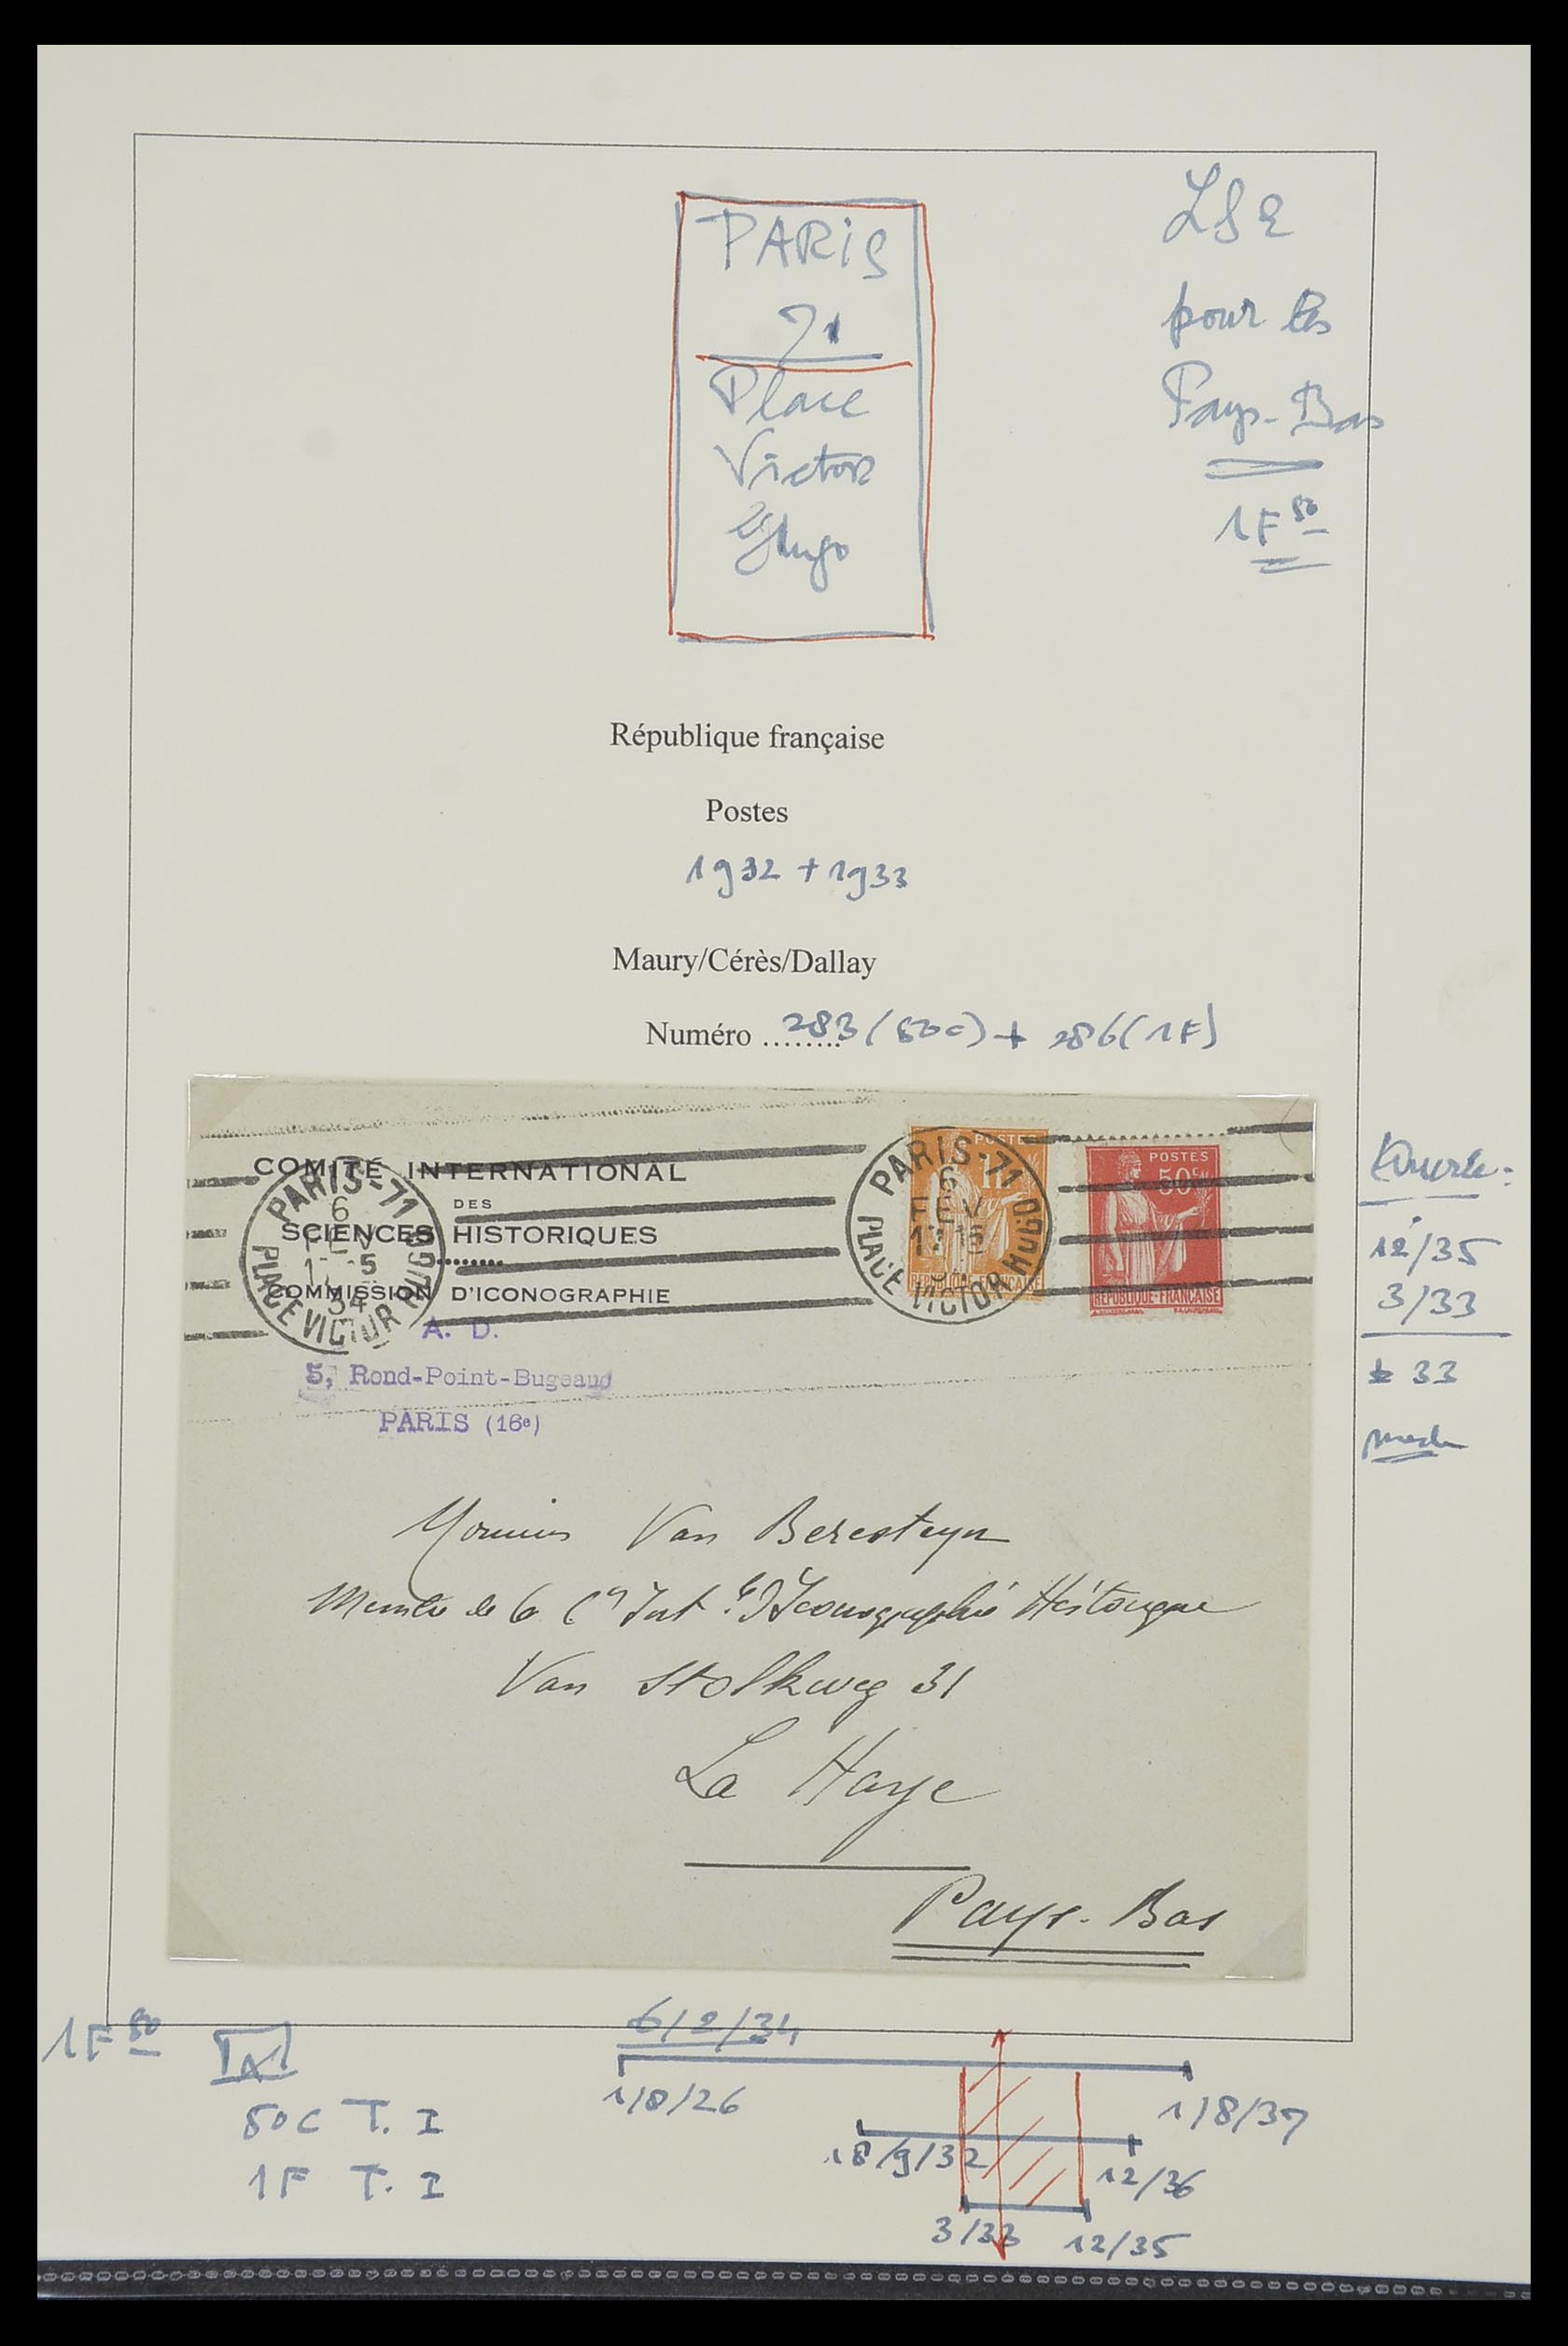 PARIS
71
Place
Victor
Hugo
LSE
pour les
Pays-Bas
1F 50
République française
Postes
1932 + 1933
Maury/Cérès/Dallay
Numéro ........ 283 (50c) + 286 (1F)
COMITÉ INTERNATIONAL
DES
SCIENCES HISTORIQUES
COMMISSION D'ICONOGRAPHIE
A. D.
5, Rond-Point-Bugeaud
PARIS (16e)
PARIS-71
6
34
PLACE VICTOR HUGO
PARIS-71
6
FEV
PLACE VICTOR HUGO
POSTES
1F
RÉPUBLIQUE FRANÇAISE
POSTES
50c
RÉPUBLIQUE-FRANÇAISE
Durée:
12/35
3/33
33
Monsieur Van Beresteyn
Membre de la Con Int le d'Iconographie Historique
Van Stolkweg 31
La Haye
Pays-Bas
1F 50
50c T. I
1F T. I
6/2/34
1/8/26
1/8/37
18/9/32
12/36
3/33
12/35